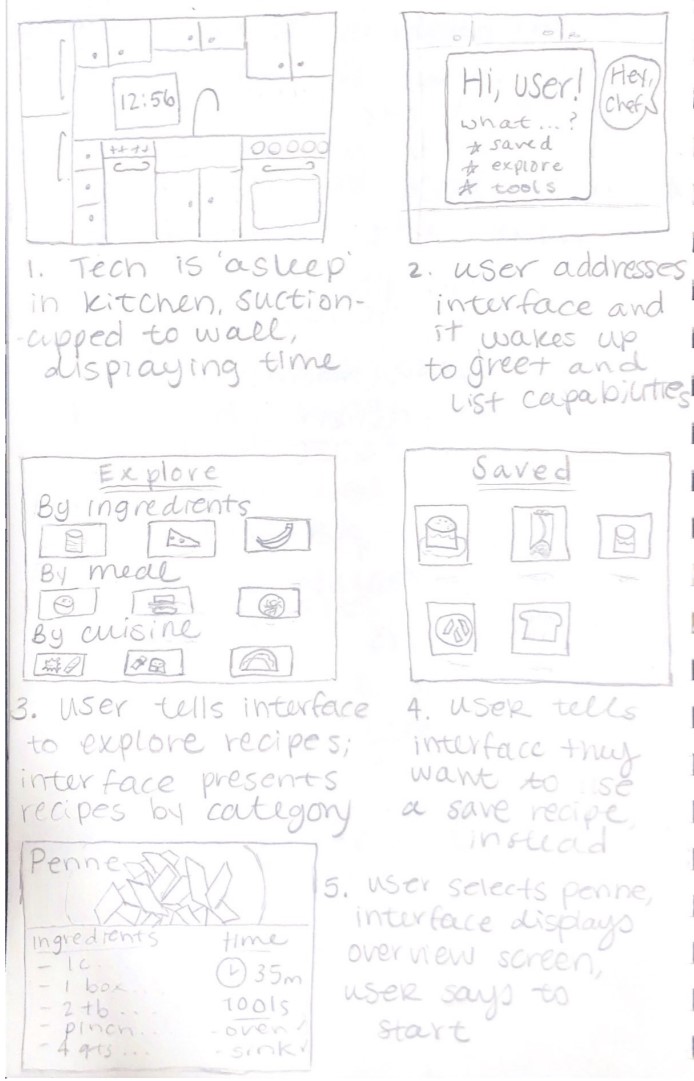 12:56
1. Tech is 'asleep'
in kitchen, suction-
-cupped to wall,
displaying time
Hi, user!
what...?
☆ saved
☆ explore
☆ tools
Hey,
chef
2. user addresses
interface and
it wakes up
to greet and
list capabilities
Explore
By ingredients
By meal
By cuisine
3. user tells interface
to explore recipes;
interface presents
recipes by category
Saved
4. user tells
interface they
want to use
a save recipe
instead
Penne
ingredients
- 1c.
- 1 box...
- 2 tb...
- pinch..
- 4 qts...
time
35m
tools
- oven
- sink
5. user selects penne,
interface displays
overview screen,
user says to
start